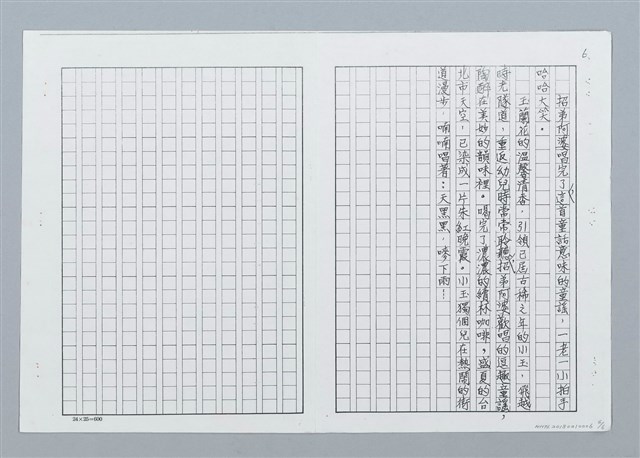 6.
招弟阿婆唱完了這首童話意味的童謠，一老一小拍手
哈哈大笑。
玉蘭花的溫馨清香，引領已屆古稀之年的小玉，飛越
時光隧道，重返幼兒時常常聆聽招弟阿婆歡唱的逗趣童謠，
陶醉在美妙的韻味裡。喝完了濃濃的續杯咖啡，盛夏的台
北市天空，已染成一片朱紅晚霞。小玉獨個兒在熱鬧的街
道漫步，喃喃唱著：天黑黑，嘜下雨！
24×25=600